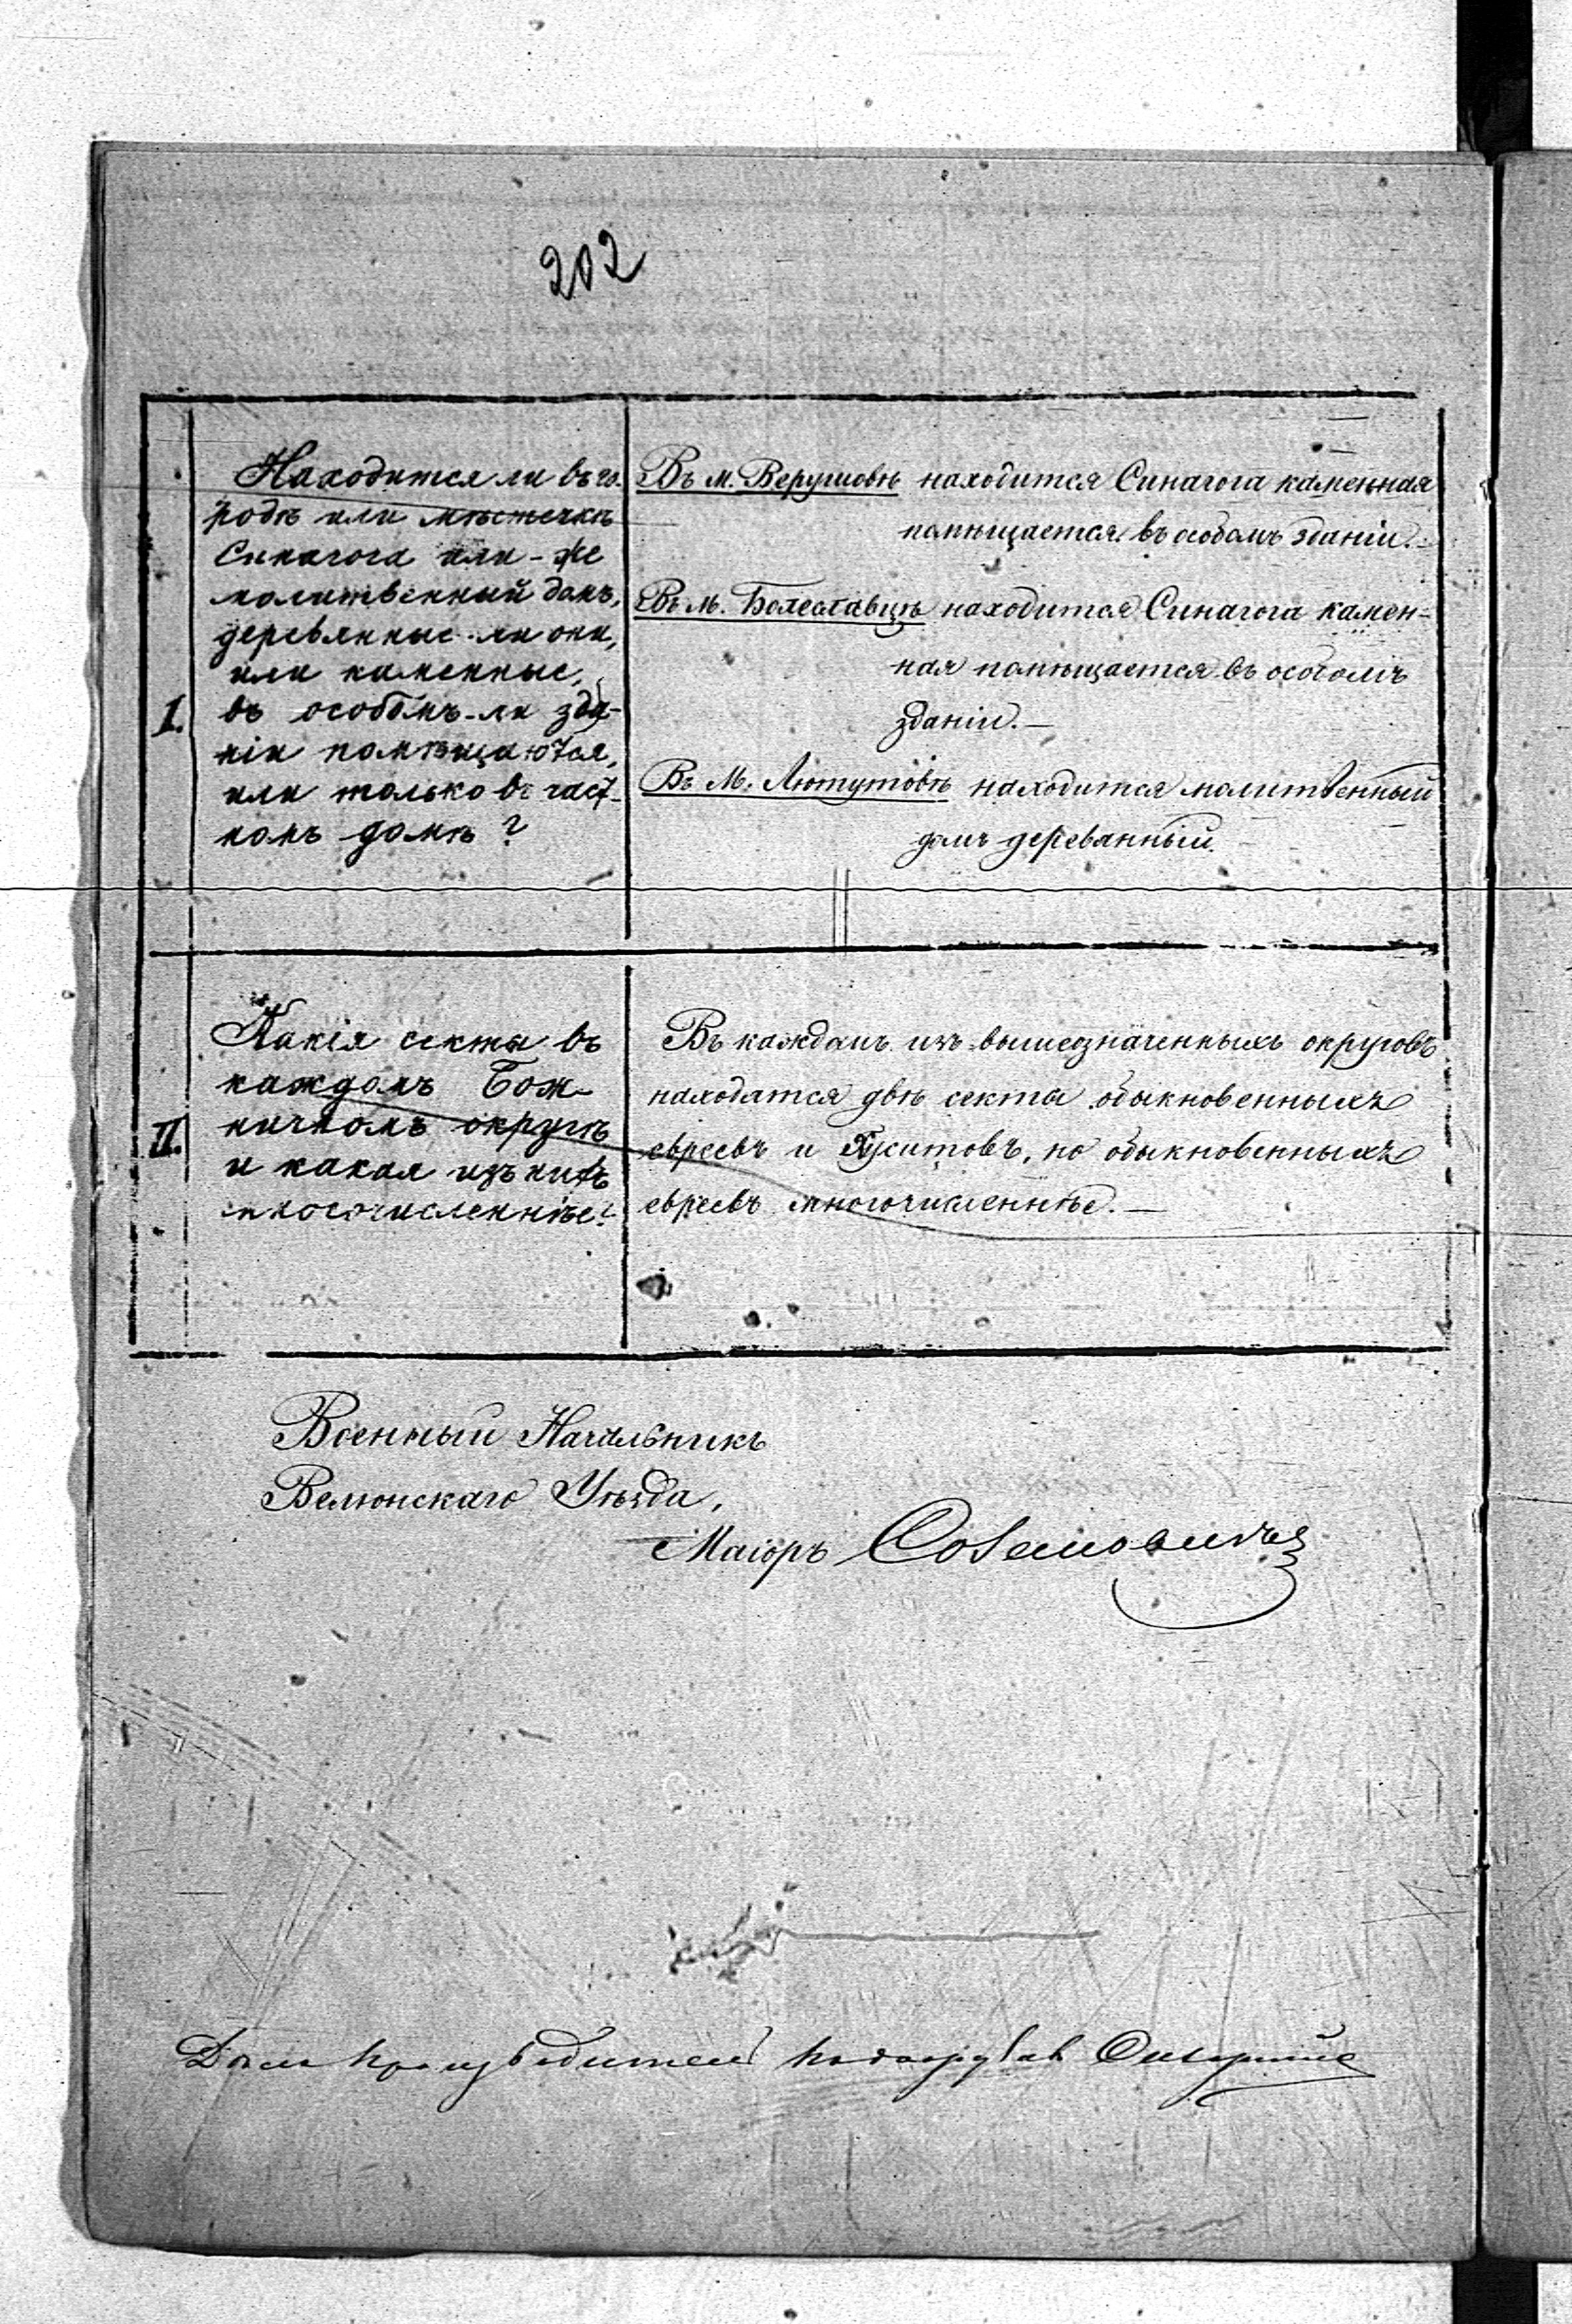 202
I.
Находится ли въ го-
родѣ или мѣстечкѣ
Синагога или-же
молитвенный домъ,
деревянные-ли они,
или каменные,
въ особомъ-ли зда-
нiи помѣщаются,
или только въ част-
номъ домѣ?
Въ м. Верушовѣ находится Синагога каменная
помѣщается въ особомъ зданiи.-
Въ м. Болеславцѣ находится Синагога камен=
ная помѣщается въ особомъ
зданiи.—
Въ м. Лютутовѣ находится молитвенный
домъ деревянный.
II.
Какiя секты въ
каждомъ Бож-
ничномъ округѣ
и какая изъ нихъ
многочисленнѣе?
Въ каждомъ изъ вышеозначенныхъ округовъ
находятся двѣ секты обыкновенныхъ
евреевъ и Хуситовъ, но обыкновенныхъ
евреевъ многочисленнѣе.—
Военный Начальникъ
Велюнскаго Уѣзда,
Маiоръ